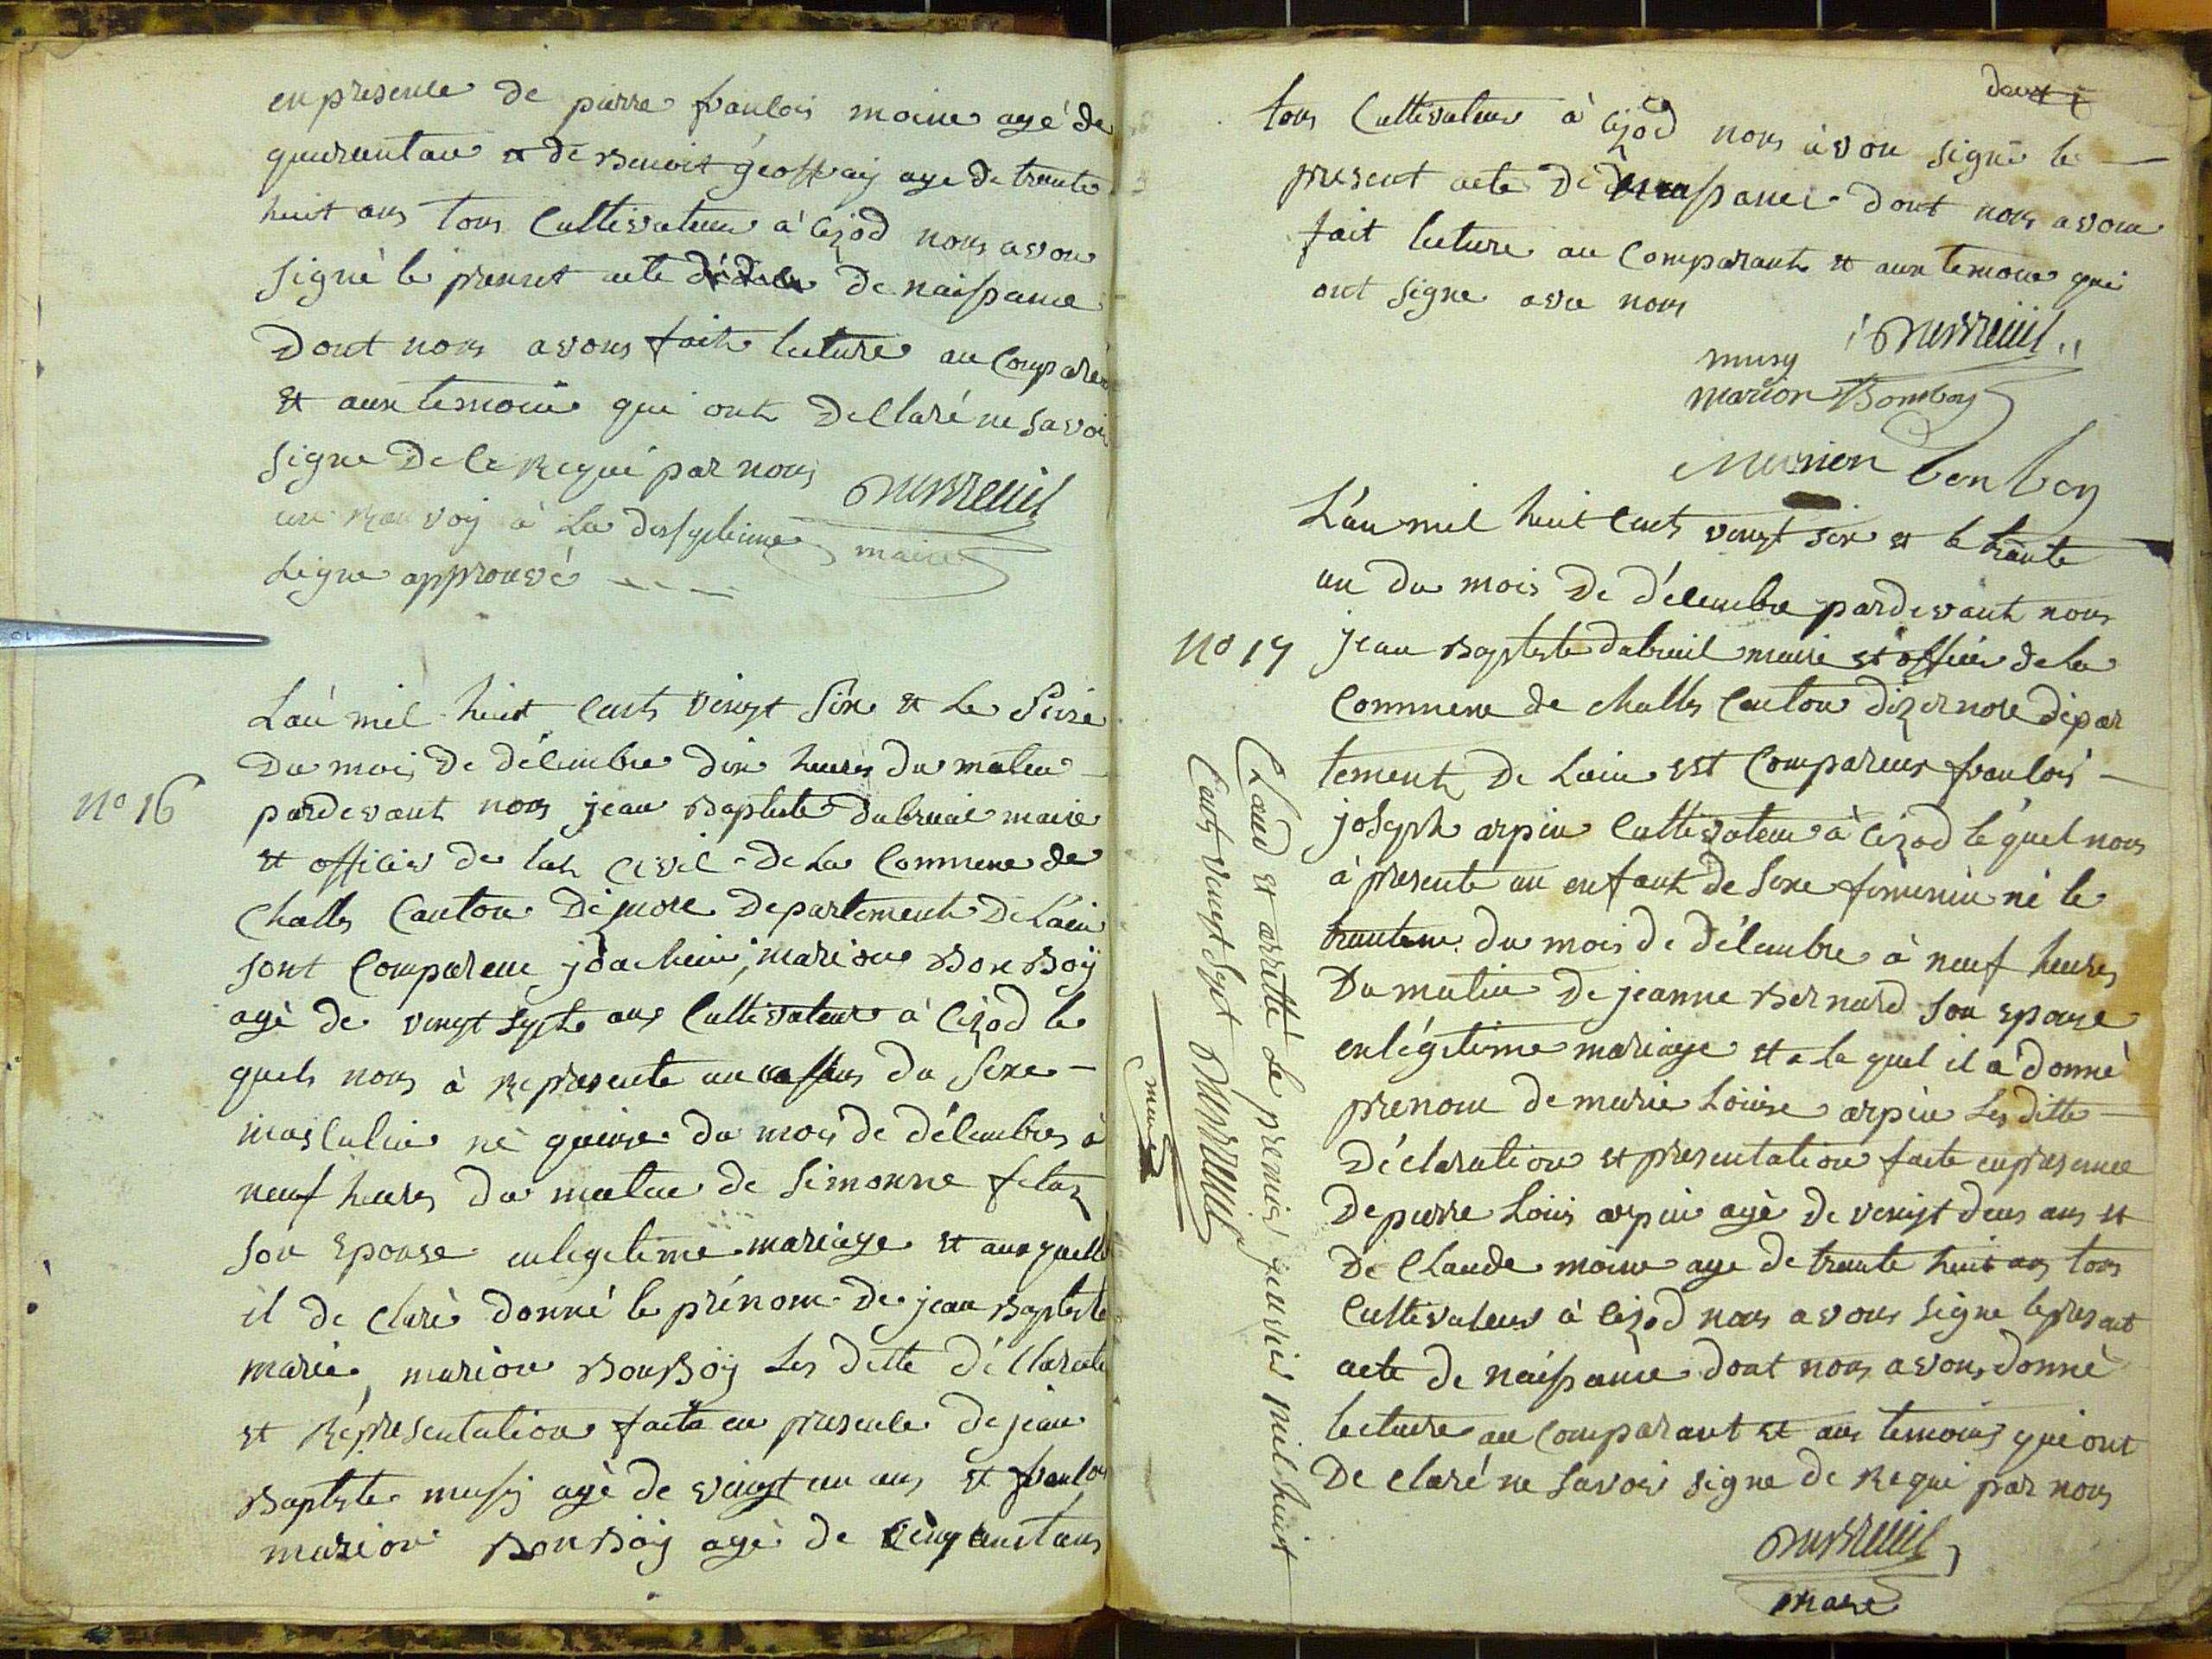 en presence de pierre franlois moine agé de
quarantan et de Benoit géoffray age de trante
huit ans tous Cultivateur à Cizod nous avon
signé le present acte de naissance
Dont nous avons fait lecture au Comparan
et aux temoin qui ont De Claré ne Savoi
signe De Ce Requi par nous Dubreuil
un Ranvoy à La
maire
Ligne approuvé
L'an mil huit Cents vingt six et le Seize
Du mois De décembre dix heures du matin
No 16
pardevant nous jean Baptiste Dubruil maire
et officier de Civil De La Commune de
Challes Canton Departement De L'ain
sont Comparu joachim, marion Bonboÿ
agé de vingt sept ans Cultivateur à Cizod le
quels nous à Represente un du Sexe
masculin né quinze du mois de décembre à
neuf heures du matin de Simonne
son Epouse en legitime mariage et au quelle
il de Claré donné le prénom De jean Baptiste
marie, marion BonBoÿ Les ditte
et Representation faite en presence De jean
Baptiste musy agé de vingt un ans et franlois
marion BonBoÿ agé de Cinquant ans
deux
tous Cultivateur à Cizod nous avon signé le
present acte De naissance dont nous avons
fait lecture au Comparant et aux temoin qui
ont signe avec nous
Dubreuil
musy
marion Bonboy
Marion bonboy
L'an mil huit Cents vingt six et le trante
un du mois De décembre pardevant nous
No 17
jean Baptiste dubruil maire et officier de la
Commune de Challes Canton dizernore dépar
tement De Lain est Compareus franlois
joseph arpin Cultivateur à Cizod le quel nous
à presenté un enfant de Sexe féminin né le
trante un du mois de décembre à neuf heures
Du matin De jeanne Bernard son epouse
en légitime mariage et a le quel il a donné
prenom de marie Loüise arpin Les ditte
Déclaration et presentation faite en presence
De pierre Loüis arpin agé De vingt deux ans et
De Claude moine age de trante huit ans tous
Cultivateur à Cizod nous avons signe le present
acte de naissance dont nous avons donné
lecture au Comparant et aux temoins qui ont
De Claré ne Savoir signe de Requi par nous
Dubreuil
maire
Cloud et arretté Le premier janvier mil huit
Cents vingt Sept Dubreuil
maire